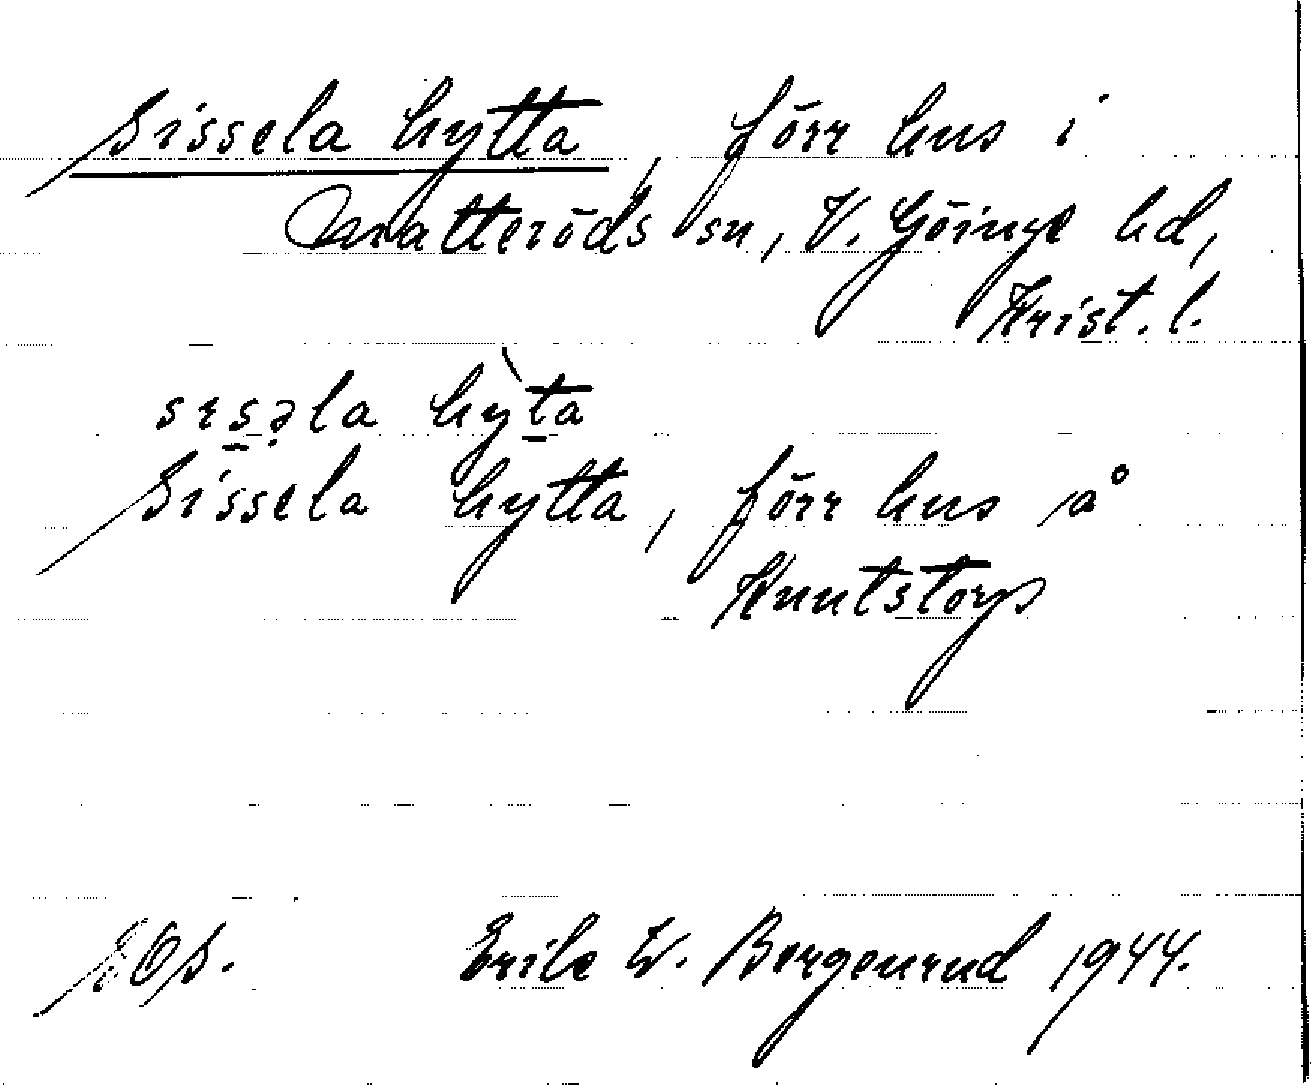 Sissela hytta, förr hus i
Matteröds sn, V. Göinge hd,
Krist. l.
sɪs̱ə̣la hỳṯa
Sissela hytta, förr hus å
Knutstorps
Erik W. Bergenrud 1944.